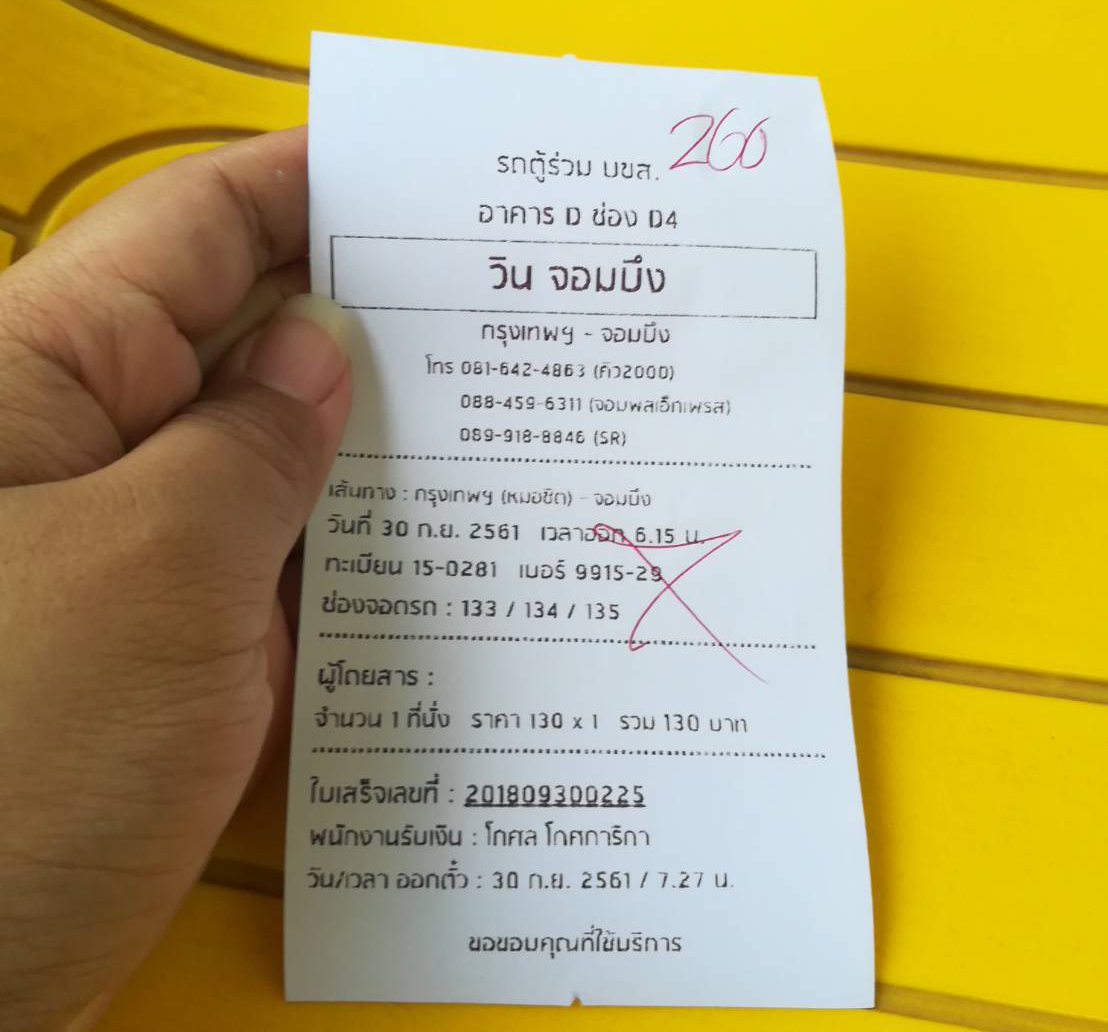 260
รถตู้ร่วม บขส.
อาคาร D ช่อง D4
วิน จอมบึง
กรุงเทพฯ - จอมบึง
โทร 081-642-4863 (คิว2000)
088-459-6311 (จอมพลเอ็กเพรส)
089-918-8846 (SR)
เส้นทาง : กรุงเทพฯ (หมอชิต) - จอมบึง
วันที่ 30 ก.ย. 2561 เวลาออก 6.15 น.
ทะเบียน 15-0281 เบอร์ 9915-29
ช่องจอดรถ : 133 / 134 / 135
ผู้โดยสาร :
จำนวน 1 ที่นั่ง ราคา 130 x 1 รวม 130 บาท
ใบเสร็จเลขที่ : 201809300225
พนักงานรับเงิน : โกศล โกศการิกา
วัน/เวลา ออกตั๋ว : 30 ก.ย. 2561 / 7.27 น.
ขอขอบคุณที่ใช้บริการ